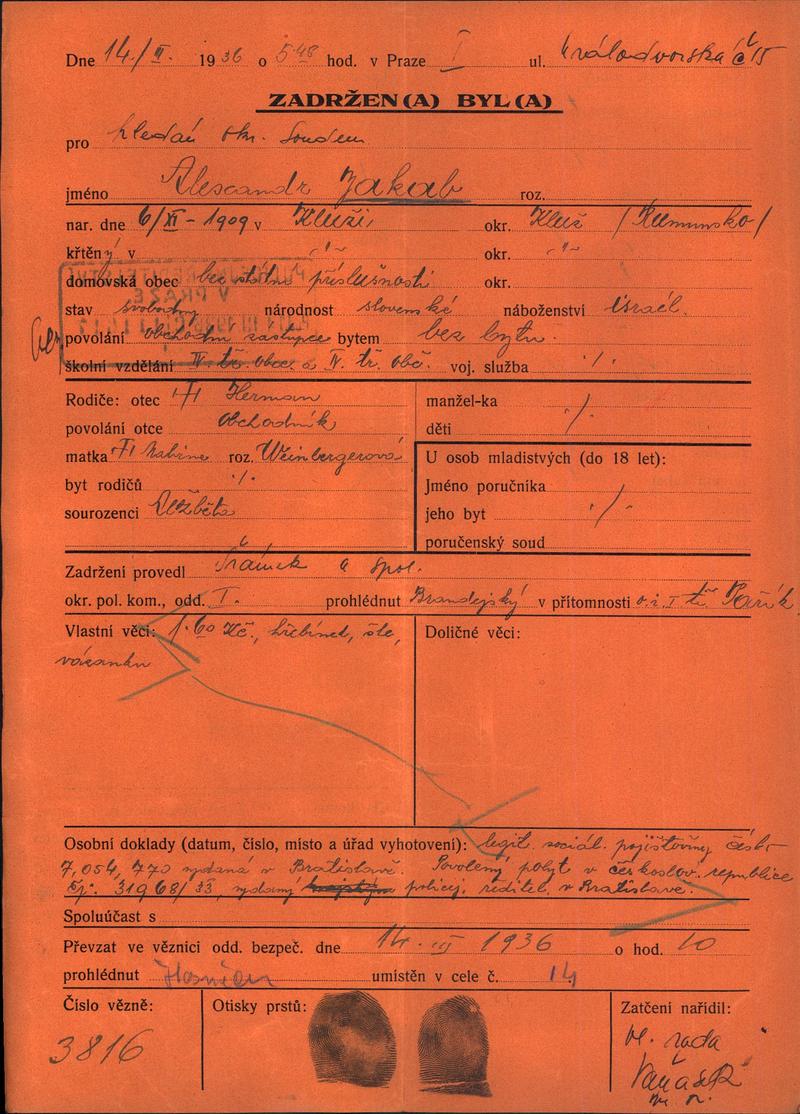 Dne 14./III. 1936 o 5 48 hod. v Praze I ul. Královdvorská č 15
ZADRŽEN(A) BYL(A)
pro hledán okr. soudem
jméno Alescandr Jakab roz.
nar. dne 6/XI - 1909 v Kluži, okr. Kluž / Rumunsko /
křtěný v -"- okr. -"-
domovská obec bez státní příslušnosti okr.
stav svobodný národnost slovenské náboženství israel.
povolání obchodní zástupce bytem bez bytu.
školní vzdělání IV. tř. obec. a IV. tř. obč. voj. služba ./.
Rodiče: otec Herman
manžel-ka ./.
povolání otce obchodník
děti
matka roz. Weinbergerová
U osob mladistvých (do 18 let):
byt rodičů ./.
Jméno poručníka
sourozenci Alžběta
jeho byt ./.
poručenský soud
Zadržení provedl Šrámek a spol.
okr. pol. kom., odd. I. prohlédnut Brandejský v přítomnosti
Vlastní věci: 1.60 Kč., hřebínek, šle,
vázanku
Doličné věci:
Osobní doklady (datum, číslo, místo a úřad vyhotovení): legit. sociál. pojišťovny čís.
7,054,770 vydaná v Bratislavě. Povolený pobyt v českoslov. republice
čj. 31968/33, vydaný policej. ředitel. v Bratislavě.
Spoluúčast s
Převzat ve věznici odd. bezpeč. dne 14. III 1936 o hod. 10
prohlédnut umístěn v cele č. 14
Číslo vězně:
3816
Otisky prstů:
Zatčení nařídil:
vl. rada
Vaňásek
m. p.